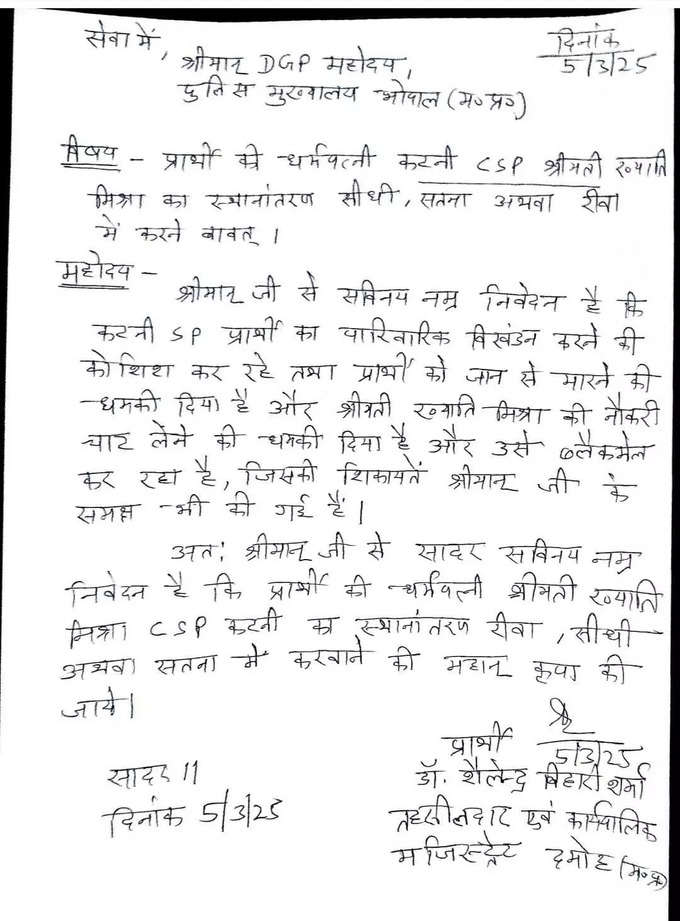 सेवा में,
दिनांक
5/3/25
श्रीमान् DGP महोदय,
पुलिस मुख्यालय भोपाल (म०प्र०)
विषय - प्रार्थी की धर्मपत्नी कटनी CSP श्रीमती ख्याति
मिश्रा का स्थानांतरण सीधी, सतना अथवा रीवा
में करने बावत् ।
महोदय -
श्रीमान् जी से सविनय नम्र निवेदन है कि
कटनी SP प्रार्थी का पारिवारिक विखंडन करने की
कोशिश कर रहे तथा प्रार्थी को जान से मारने की
धमकी दिया है और श्रीमती ख्याति मिश्रा की नौकरी
चाट लेने की धमकी दिया है और उसे ब्लैकमेल
कर रहा है, जिसकी शिकायतें श्रीमान् जी के
समक्ष भी की गई हैं।
अतः श्रीमान् जी से सादर सविनय नम्र
निवेदन है कि प्रार्थी की धर्मपत्नी श्रीमती ख्याति
मिश्रा CSP कटनी का स्थानांतरण रीवा, सीधी
अथवा सतना में करवाने की महान् कृपा की
जाये।
प्रार्थी 5/3/25
सादर ।।
डॉ. शैलेन्द्र बिहारी शर्मा
दिनांक 5/3/25
तहसीलदार एवं कार्यपालिक
मजिस्ट्रेट दमोह (म०प्र०)